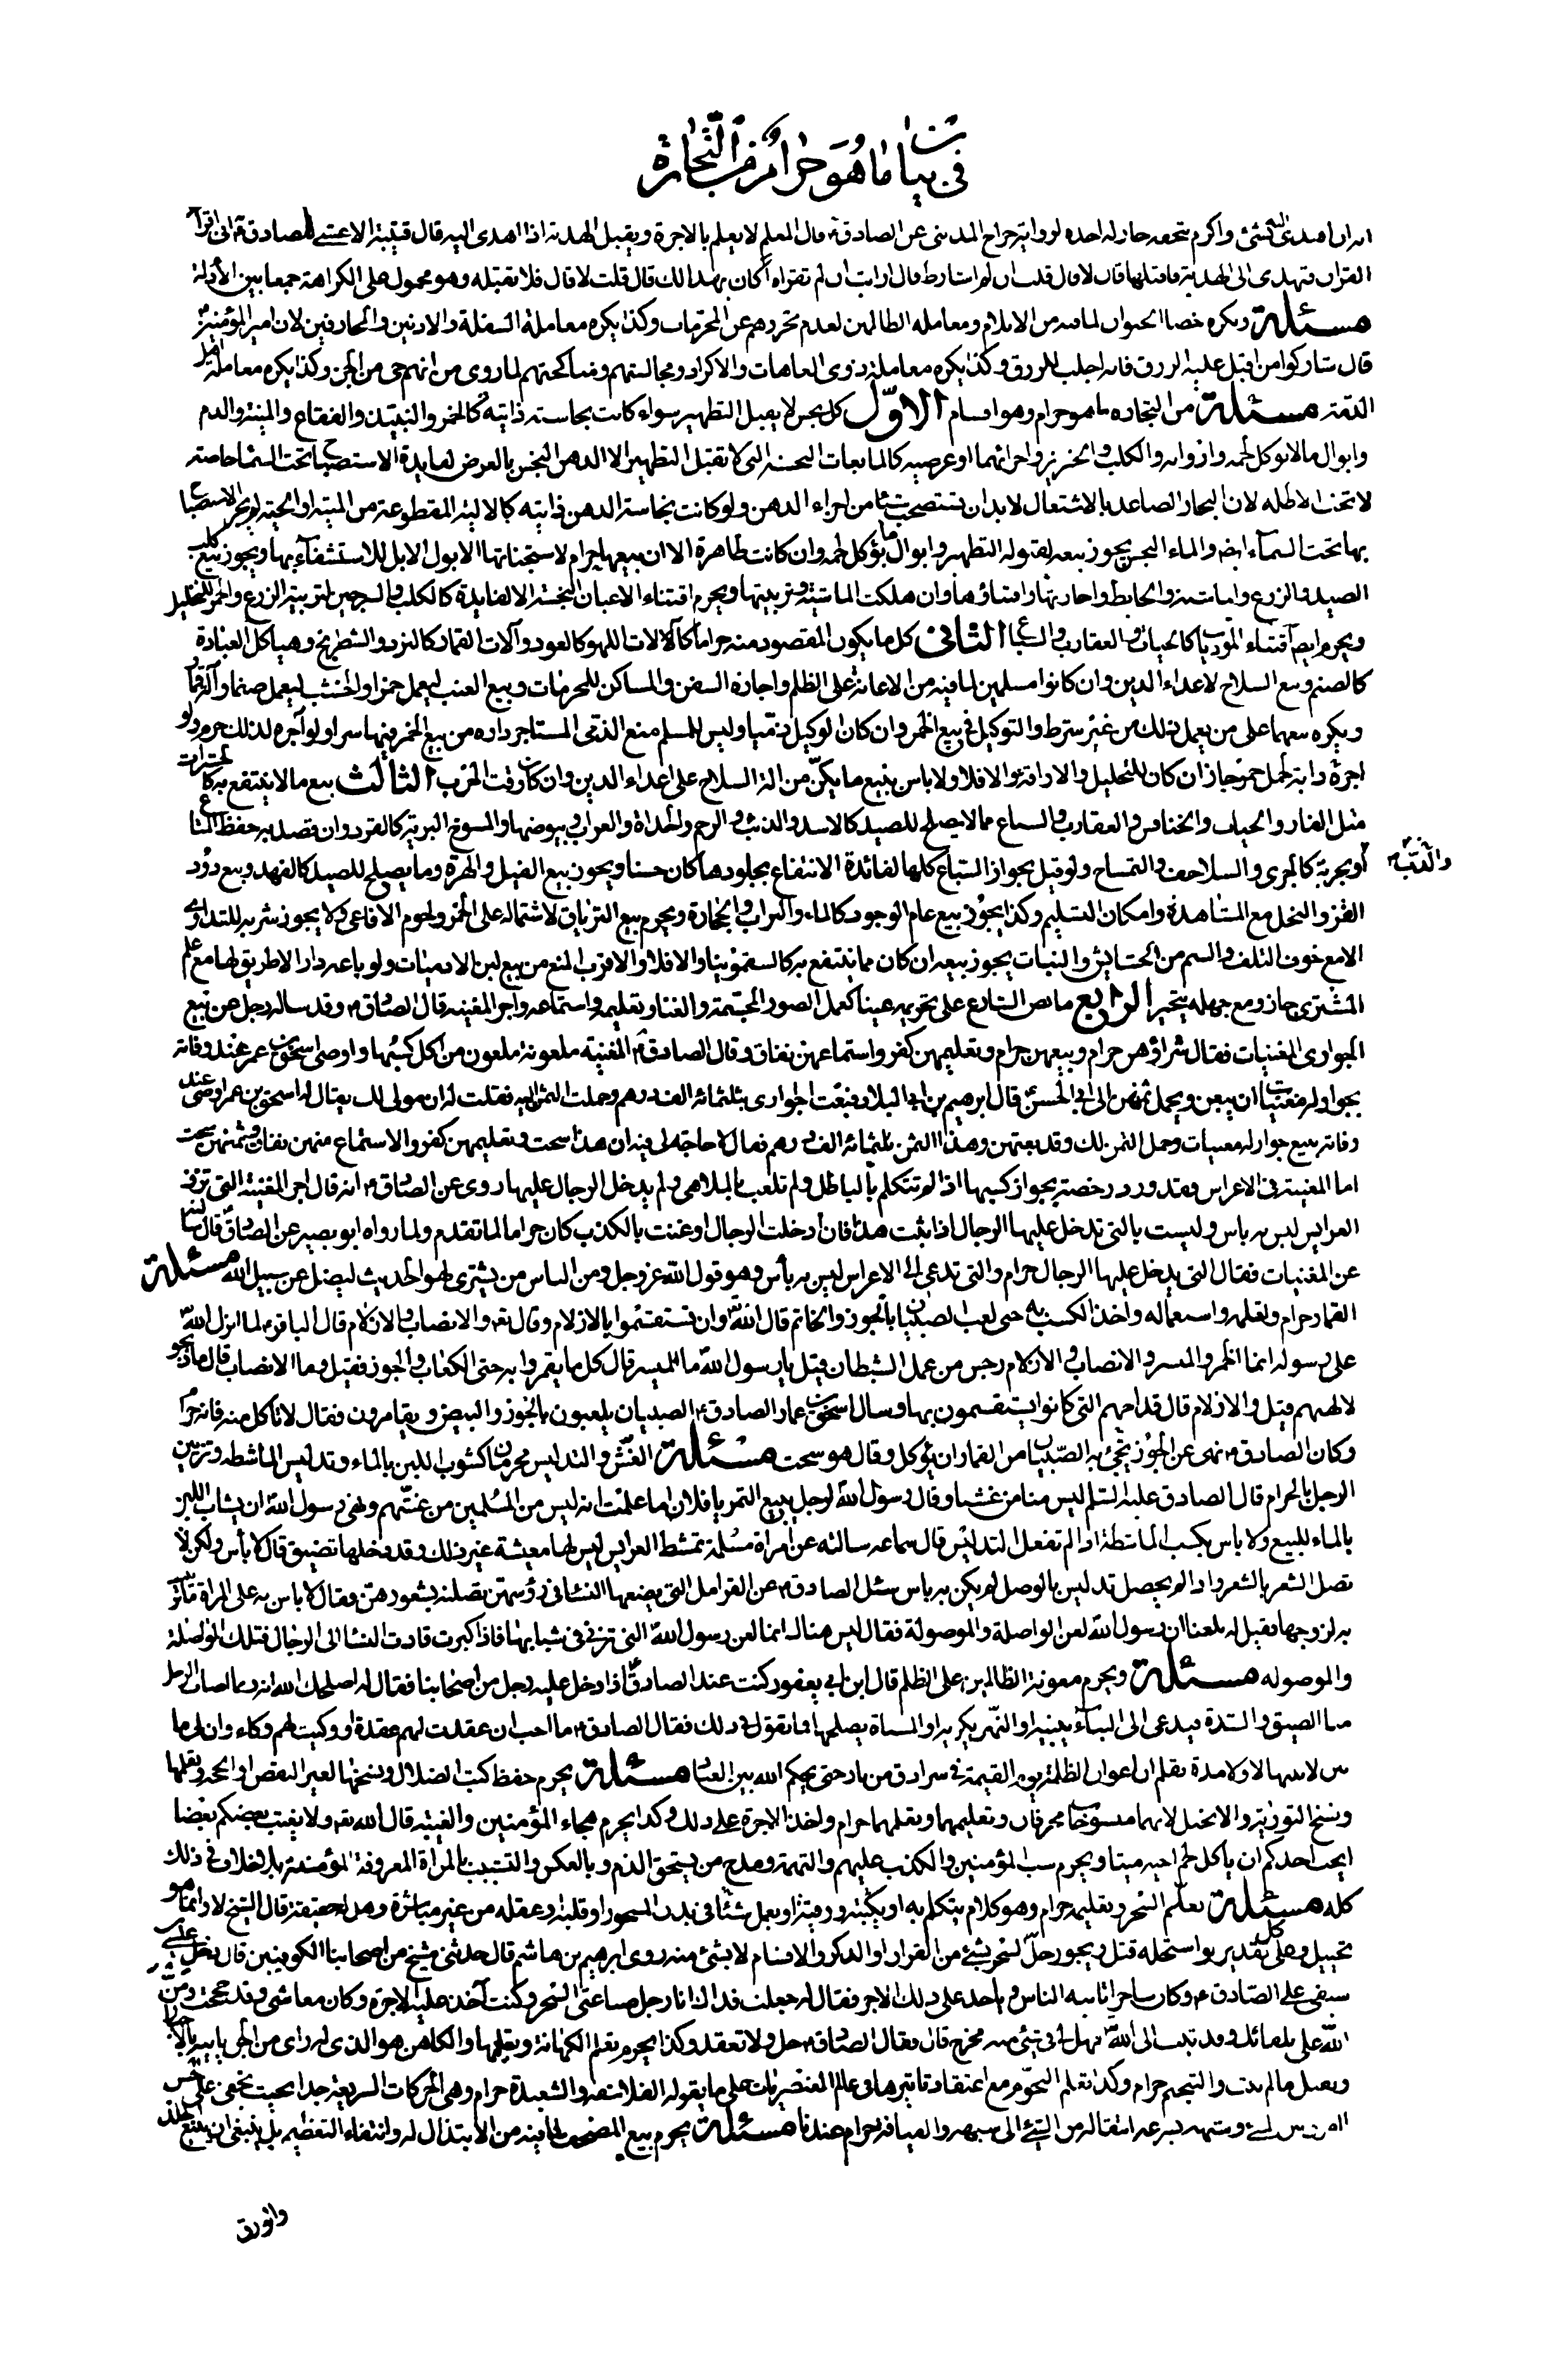 في بيان ما هو حرام من التجارة
القران فتهدى الى الهدية فاقبلها قال لا قال قلت ان لم اشارط قال ارايت ان لم تقراه أكان يهدا لك قال قلت لا قال فلا تقبله وهو محمول على الكراهة جمعا بين الأدلة
مسئلة ويكره خصا الحيوان لما فيه من الايلام ومعاملة الظالمين لعدم تحرزهم عن المحرمات وكذا يكره معاملة السفلة والادنين والمحارفين لان امير المؤمنين
قال شاركوا من اقبل عليه الرزق فانه اجلب للرزق وكذا يكره معاملة ذوى العاهات والاكراد ومجالستهم ومناكحتهم لما روى من انهم حى من الجن وكذا يكره معاملة اهل
الذمة مسئلة من التجارة ما هو حرام وهو اقسام الاوّل كل نجس لا يقبل التطهير سواء كانت نجاسته ذاتية كالخمر والنبيذ والفقاع والميتة والدم
وابوال ما لا يؤكل لحمه وارواثه والكلب والخنزير واجزائهما او عرضية كالمايعات النجسة التي لا تقبل التطهير الا الدهن النجس بالعرض لفايدة الاستصباح تحت السماء خاصة
لا تحت الاظلة لان البخار الصاعد بالاشتعال لابد ان تستصحب شيئا من اجزاء الدهن ولو كانت نجاسة الدهن ذاتية كالالية المقطوعة من الميتة او الحية لم يجز الاستصباح
بها تحت السماء ايضا والماء النجس يجوز بيعه لقبوله التطهير وابوال ما يؤكل لحمه وان كانت طاهرة الا ان بيعها حرام لاستخباثها الا بول الابل للاستشفاء بها ويجوز بيع كلب
الصيد والزرع والماشية والحايط واجارتها واقتناؤها وان هلكت الماشية وتربيتها ويحرم اقتناء الاعيان النجسة الا لفايدة كالكلب والسرجين لتربية الزرع والخمر للتخليل
ويحرم ايضا اقتناء الموذيات كالحيات والعقارب والسباع الثانى كل ما يكون المقصود منه حراما كآلات اللهو كالعود وآلات القمار كالنرد والشطرنج وهياكل العبادة
كالصنم وبيع السلاح لاعداء الدين وان كانوا مسلمين لما فيه من الاعانة على الظلم واجارة السفن والمساكن للمحرمات وبيع العنب ليعمل خمرا والخشب ليعمل صنما وآلة قمار
ويكره بيعهما على من يعمل ذلك من غير شرط والتوكيل في بيع الخمر وان كان الوكيل ذميا وليس للمسلم منع الذمى المستاجر داره من بيع الخمر فيها سرا ولو آجره لذلك حرم ولو
اجره دابة لحمل خمر جاز ان كان للتخليل والاراقة والا فلا ولا باس ببيع ما يكنّ من آلة السلاح على اعداء الدين وان كان وقت الحرب الثالث بيع ما لا ينتفع به كالحشرات
مثل الفار والحيات والخنافس والعقارب والسباع مما لا يصلح للصيد كالاسد والذئب والرحم والحداة والغراب وبيوضها والمسوخ البرية كالقرد وان قصد به حفظ المتاع
والدبّ
أو بحرية كالجرى والسلاحف والتمساح ولو قيل بجواز السباع كلها لفائدة الانتفاع بجلودها كان حسنا ويجوز بيع الفيل والهرة وما يصلح للصيد كالفهد وبيع دود
القز والنحل مع المشاهدة وامكان التسليم وكذا يجوز بيع عام الوجود كالماء والتراب والحجارة ويحرم بيع الترياق لاشتماله على الخمر ولحوم الافاعى ولا يجوز شربه للتداوى
الا مع خوف التلف والسم من الحشايش والنبات يجوز بيعه ان كان مما ينتفع به كالسقمونيا والا فلا والاقرب المنع من بيع لبن الادميات ولو باعه دارا لا طريق لها مع علم
المشترى جاز ومع جهله يتخير الرابع ما نص الشارع على تحريمه عينا كعمل الصور المجسمة والغناء وتعليمه واستماعه واجر المغنية قال الصادق وقد ساله رجل عن بيع
الجوارى المغنيات فقال شراؤهن حرام وبيعهن حرام وتعليمهن كفر واستماعهن نفاق وقال الصادق المغنية ملعونة ملعون من اكل كسبها واوصى اسحق بن عمر عند وفاته
بجوار له مغنيات ان يبعن ويحمل ثمنهن الى ابى الحسن قال ابرهيم بن ابى البلاد فبعت الجوارى بثلثمائة الف درهم وحملت الثمن اليه فقلت له ان مولى لك يقال له اسحق بن عمر اوصى عند
وفاته ببيع جوار له مغنيات وحمل الثمن لك وقد بعتهن وهذا الثمن ثلثمائة الف درهم فقال لا حاجة لى فيه ان هذا سحت وتعليمهن كفر والاستماع منهن نفاق وثمنهن سحت
اما المغنية في الاعراس فقد ورد رخصة بجواز كسبها اذا لم تتكلم بالباطل ولم تلعب بالملاهى ولم يدخل الرجال عليها روى عن الصادق انه قال اجر المغنية التي تزف
العرايس ليس به باس وليست بالتى تدخل عليها الرجال اذا ثبت هذا فان أدخلت الرجال او غنت بالكذب كان حراما لما تقدم ولما رواه ابو بصير عن الصادق قال سالته
عن المغنيات فقال التي يدخل عليها الرجال حرام والتي تدعى الى الاعراس ليس به بأس وهو قول الله عز وجل ومن الناس من يشترى لهو الحديث ليضل عن سبيل الله مسئلة
القمار حرام وتعلمه واستعماله واخذ الكسب به حتى لعب الصبيان بالجوز والخاتم قال الله تعالى وان تستقسموا بالازلام وقال تعالى والانصاب والازلام قال الباقر لما انزل الله
على رسوله انما الخمر والميسر والانصاب والازلام رجس من عمل الشيطان قيل يا رسول الله ما الميسر قال كل ما يقمروا به حتى الكعاب والجوز فقيل وما الانصاب قال ما ذبحوا
لالهتهم قيل والازلام قال قداحهم التي كانوا يستقسمون بها وسال اسحق بن عمار الصادق الصبيان يلعبون بالجوز والبيض ويقامرون فقال لا تاكل منه فانه حرام
وكان الصادق نهى عن الجوز يجئ به الصبيان من القمار ان يؤكل وقال هو سحت مسئلة الغش والتدليس محرمان كشوب اللبن بالماء وتدليس الماشطة وتزيين
الرجل بالحرام قال الصادق عليه السلم ليس منا من غشنا وقال رسول الله لرجل يبيع التمر يا فلان اما علمت انه ليس من المسلمين من غشهم ونهى رسول الله ان يشاب اللبن
بالماء للبيع ولا باس بكسب الماشطة اذا لم تفعل التدليس قال سماعة سالته عن امراة مسلمة تمشط العرايس ليس لها معيشة غير ذلك وقد دخلها تضييق قال لا بأس ولكن لا
تصل الشعر بالشعر واذا لم يحصل تدليس بالوصل لم يكن به باس سئل الصادق عن القرامل التي يضعها النساء في رؤسهن يصلنه بشعورهن فقال لا باس به على المراة ما تزينت
به لزوجها فقيل له بلغنا ان رسول الله لعن الواصلة والموصولة فقال ليس هناك انما لعن رسول الله التي تزنى في شبابها فاذا كبرت قادت النساء الى الرجال فتلك الواصلة
والموصولة مسئلة ويحرم معونة الظالمين على الظلم قال ابن ابى يعفور كنت عند الصادق اذ دخل عليه رجل من اصحابنا فقال له اصلحك الله انه ربما اصاب الرجل
منا الضيق والشدة فيدعى الى البناء يبنيه او النهر يكريه او المسناة يصلحها فما تقول في ذلك فقال الصادق ما احب ان عقدت لهم عقدة او وكيت لهم وكاء وان لى ما
بين لابتيها لا ولا مدة بقلم ان اعوان الظلمة يوم القيمة في سرادق من نار حتى يحكم الله بين العباد مسئلة يحرم حفظ كتب الضلال ونسخها لغير النقض او الحجة وتعلمها
ونسخ التورية والانجيل لانهما منسوخان محرفان وتعليمهما وتعلمهما حرام واخذ الاجرة على ذلك وكذا يحرم هجاء المؤمنين والغيبة قال الله تعالى ولا يغتب بعضكم بعضا
ايحب احدكم ان يأكل لحم اخيه ميتا ويحرم سب المؤمنين والكذب عليهم والتهمة ومدح من يستحق الذم وبالعكس والتشبيب بالمراة المعروفة المؤمنة بلا خلاف في ذلك
كله مسئلة تعلّم السحر وتعليمه حرام وهو كلام يتكلم به او يكتبه او رقية او يعمل شيئا في بدن المسحور او قلبه او عقله من غير مباشرة وهل له حقيقة قال الشيخ لا وانما هو
تخييل وعلى كل تقدير لو استحله قتل ويجوز حلّ السحر بشئ من القران او الذكر والاقسام لا بشئ منه روى ابرهيم بن هاشم قال حدثنى شيخ من اصحابنا الكوفيين قال دخل عيسى
سقفى على الصادق وكان ساحرا ياتيه الناس وياخذ على ذلك الاجر فقال له جعلت فداك انا رجل صناعتى السحر وكنت آخذ عليه الاجرة وكان معاشى وقد حججت ومنّ
الله على بلقائك وقد تبت الى الله تعالى فهل لى في شئ منه مخرج قال فقال الصادق حل ولا تعقد وكذا يحرم تعلم الكهانة وتعليمها والكاهن هو الذى له راى من الجن ياتيه بالاخبار
ويقتل ما لم يتب والتنجيم حرام وكذا تعلم النجوم مع اعتقاد تاثيرها في عالم العنصريات على ما يقوله الفلاسفة والشعبدة حرام وهى الحركات السريعة جدا بحيث يخفى على الحس
انتقاله من الشئ الى شبهه والقيافة حرام عندنا مسئلة يحرم بيع المصحف لما فيه من الابتذال له وانتفاء التعظيم بل ينبغى ان يبيع الجلد
والورق